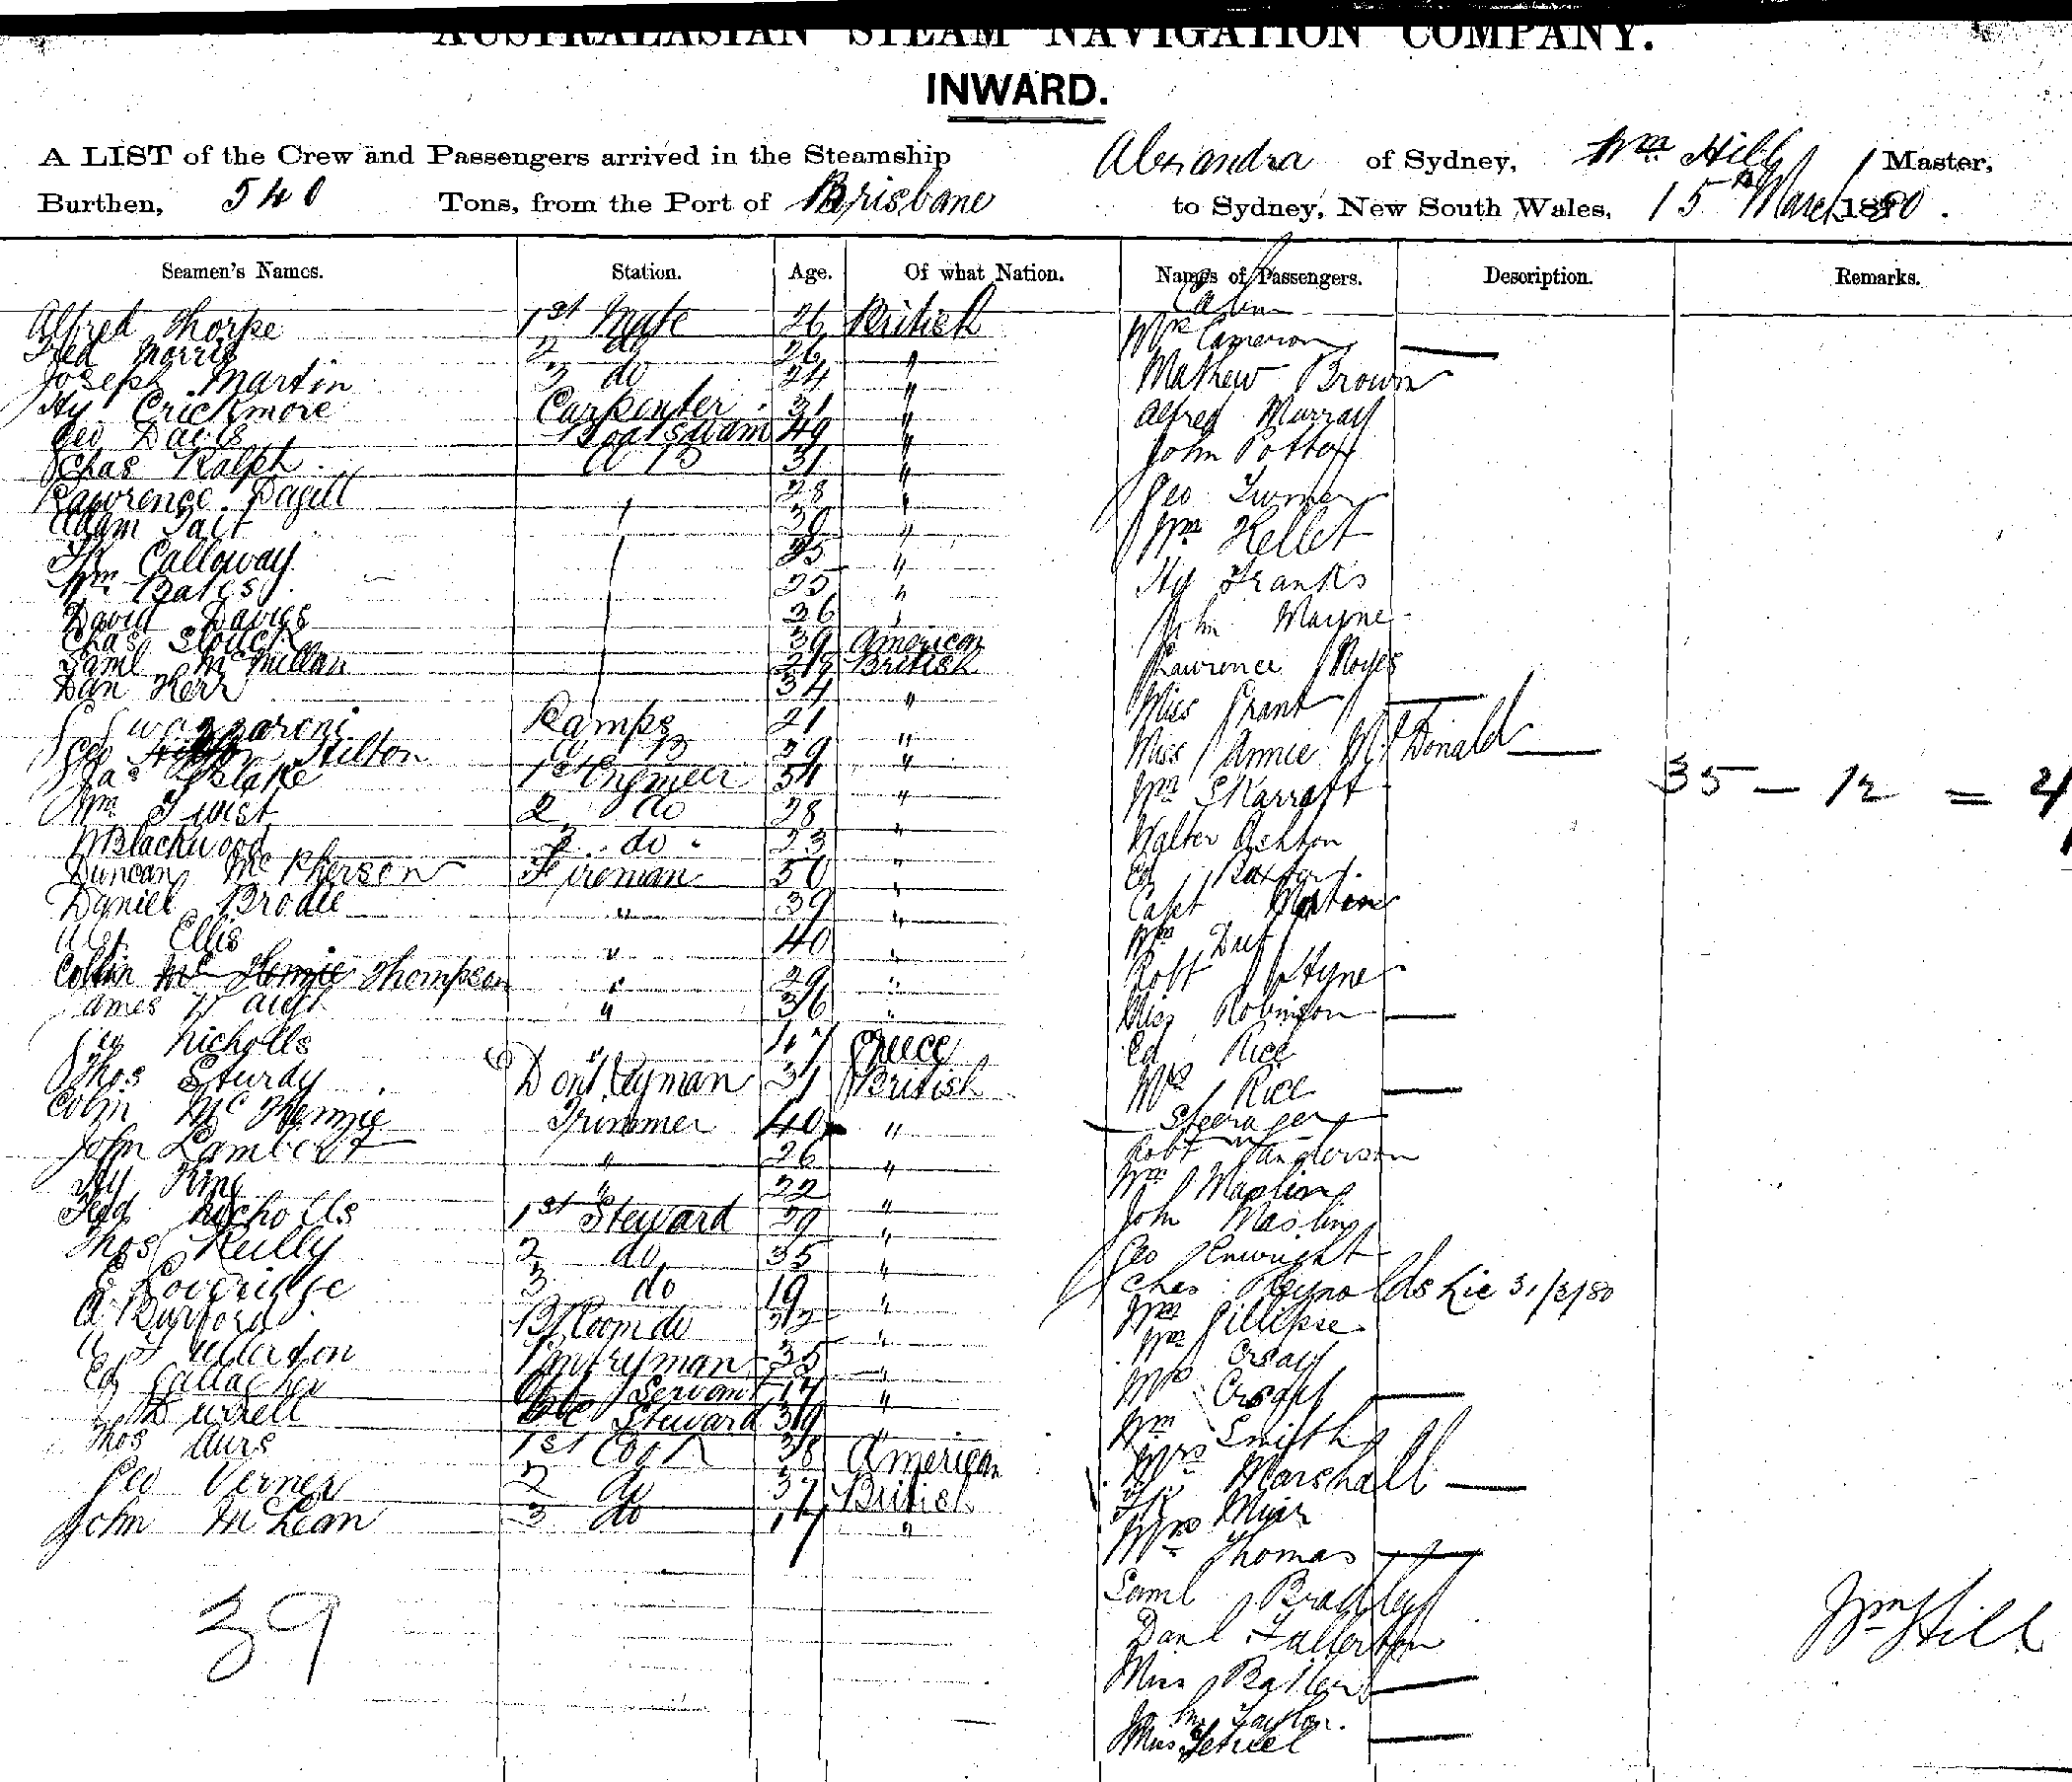 AUSTRALASIAN STEAM NAVIGATION COMPANY.
INWARD.
A LIST of the Crew and Passengers arrived in the Steamship Alexandra of Sydney, Wm Hill Master,
Burthen, 540 Tons, from the Port of Brisbane to Sydney, New South Wales, 15th March 1880.
Seamen's Names. Station. Age. Of what Nation. Names of Passengers. Description. Remarks.
Alfred Thorpe 1st Mate 26 British
Fred Morris 2 do 26 "
Joseph Martin 3 do 24 "
Hy Crickmore Carpenter 31 "
Geo Davis Boatswain 49 "
Chas Ralph A B 31 "
Lawrence Pagill 28 "
Adam Tait 30 "
Fk Calloway 25 "
Wm Bates 25 "
David Davies 36 "
Chas 39 American
Saml McMillan 28 British
Dan Kerr 34 "
Lamps 21 "
Geo Hilton A B 29 "
Jas Blake 1st Engineer 54 "
Wm Twist 2 do 28 "
W Blackwood 3 do 23 "
Duncan McPherson Fireman 50 "
Daniel Brodie " 39 "
Ellis " 40 "
Collin Mc Kenzie Thompson " 29 "
James Waugh " 36 "
Nicholls " 47 Greece
Thos Sturdy Donkeyman 31 British
Colin McKenzie Trimmer 40 "
John Lambert " 26 "
Hy King " 22 "
Fred Nicholls 1st Steward 29 "
Thos Reilly 2 do 35 "
E Loveridge 3 do 19 "
A Burford B Room do 32 "
A Fullerton Pantryman 35 "
Ed Gallagher Servant 17 "
Durrell Steward 39 "
Thos Aurs 1st Cook 38 American
Geo Verner 2 do 37 British
John McLean 3 do 17 "
39
Cabin
Mrs Cameron
Mathew Brown
Alfred Murray
John Potter
Geo Turner
Wm Kellet
Hy Franks
John Mayne
Lawrence Noyes
Miss Grant
Miss Annie McDonald
Wm Skarratt
Walter Ashton
Ed Baxter
Capt Martin
Wm
Robt Hyne
Miss Robinson
Ed Rice
Mrs Rice
Steerage
Robt Vanderson
Wm Mapling
John Masling
Geo Enwright
Chas Reynolds Lic 31/3/80
Wm Gillipse
Wm Orsay
Mrs Orsay
Wm Smith
Mrs Marshall
Fk Muir
Mrs Thomas
Saml Bradley
Danl Fullerton
Miss Butler
Jno Taylor
Miss
35 - 12 =
Wm Hill